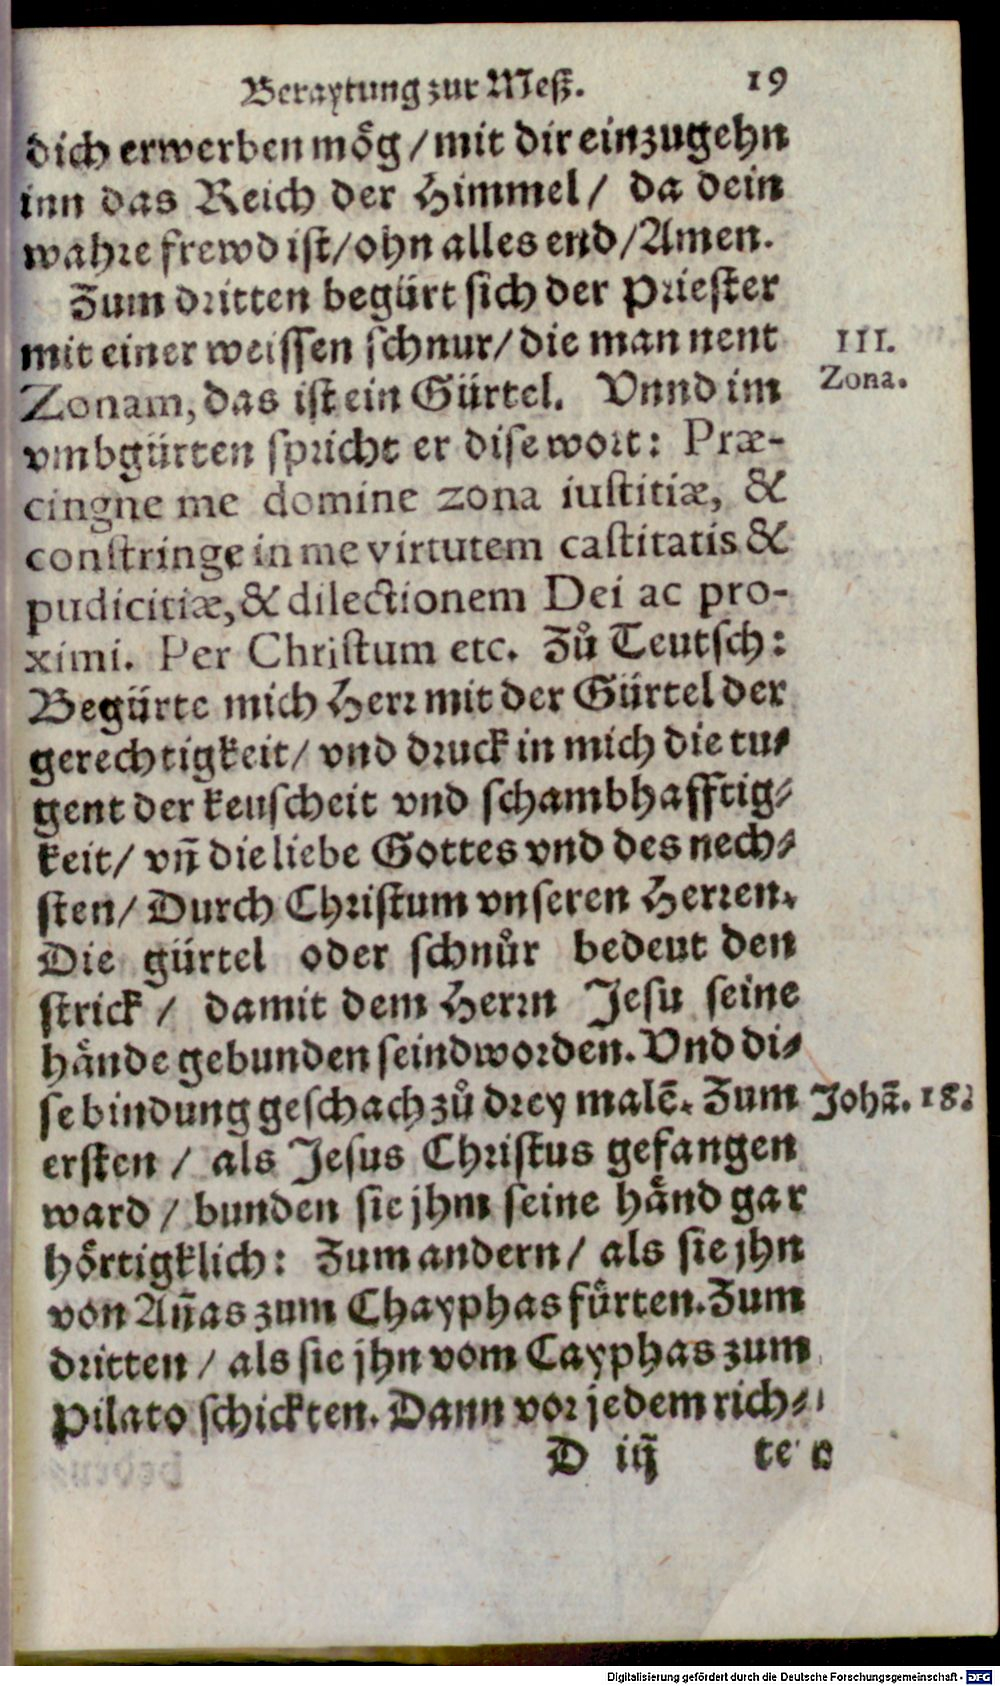 Beraytung zur Meß. 19
dich erwerben mög / mit dir einzugehn
inn das Reich der Himmel / da dein
wahre frewd ist / ohn alles end / Amen.
Zum dritten begürt sich der Priester
mit einer weissen schnur / die man nent
III.
Zonam, das ist ein Gürtel. Vnnd im
Zona.
vmbgürten spricht er dise wort: Præ-
cingne me domine zona iustitiæ, &
constringe in me virtutem castitatis &
pudicitiæ, & dilectionem Dei ac pro-
ximi. Per Christum etc. Zů Teutsch:
Begürte mich Herr mit der Gürtel der
gerechtigkeit / vnd druck in mich die tu-
gent der keuscheit vnd schambhafftig-
keit / vñ die liebe Gottes vnd des nech-
sten / Durch Christum vnseren Herren.
Die gürtel oder schnůr bedeut den
strick / damit dem Herrn Jesu seine
hände gebunden seind worden. Vnd di-
se bindung geschach zů drey malē. Zum
Johā. 18.
ersten / als Jesus Christus gefangen
ward / bunden sie jhm seine händ gar
hörtigklich: Zum andern / als sie jhn
von Añas zum Chayphas fürten. Zum
dritten / als sie jhn vom Cayphas zum
Pilato schickten. Dann vor jedem rich-
D iij te
Digitalisierung gefördert durch die Deutsche Forschungsgemeinschaft - DFG